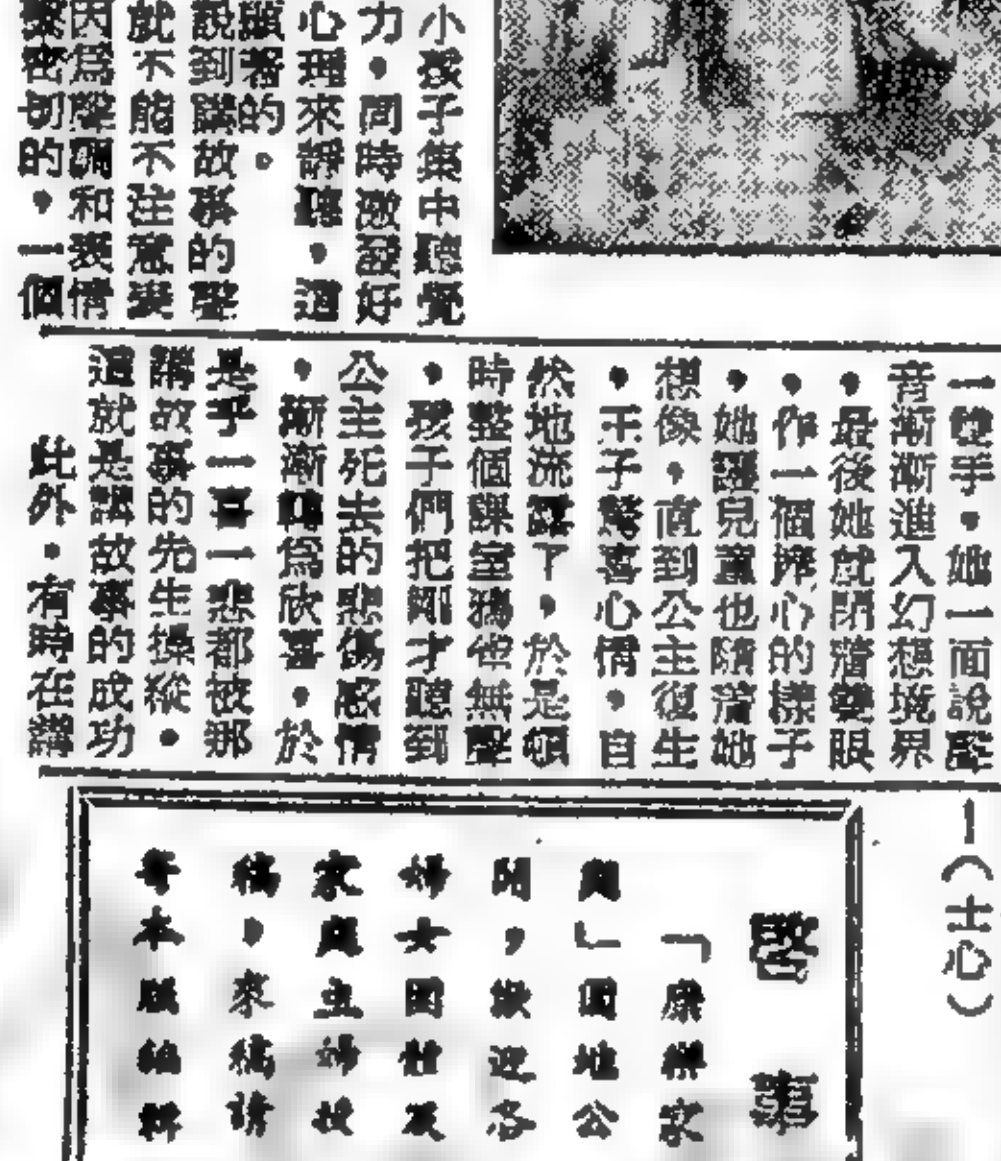 小孩子集中聽覺
力，同時激發好
心理來靜聽，這
顯著的。
說到講故事的聲
就不能不注意聲
因爲聲調和表情
密切的，一個
一雙手，她一面說聲
音漸漸進入幻想境界
，最後她就閉著雙眼
，作一個擰心的樣子
，她讓兒童也隨著她
想像，直到公主復生
，王子驚喜心情，自
然地流露了，於是頓
時整個課室鴉雀無聲
，孩子們把剛才聽到
公主死去的悲傷感情
，漸漸轉爲欣喜，於
是乎一喜一悲都被那
講故事的先生操縱，
這就是講故事的成功
此外，有時在講
—（士心）
啓事
「康樂家
庭」園地公
開，歡迎各
婦女團體及
家庭主婦投
稿，來稿請
寄本版編輯